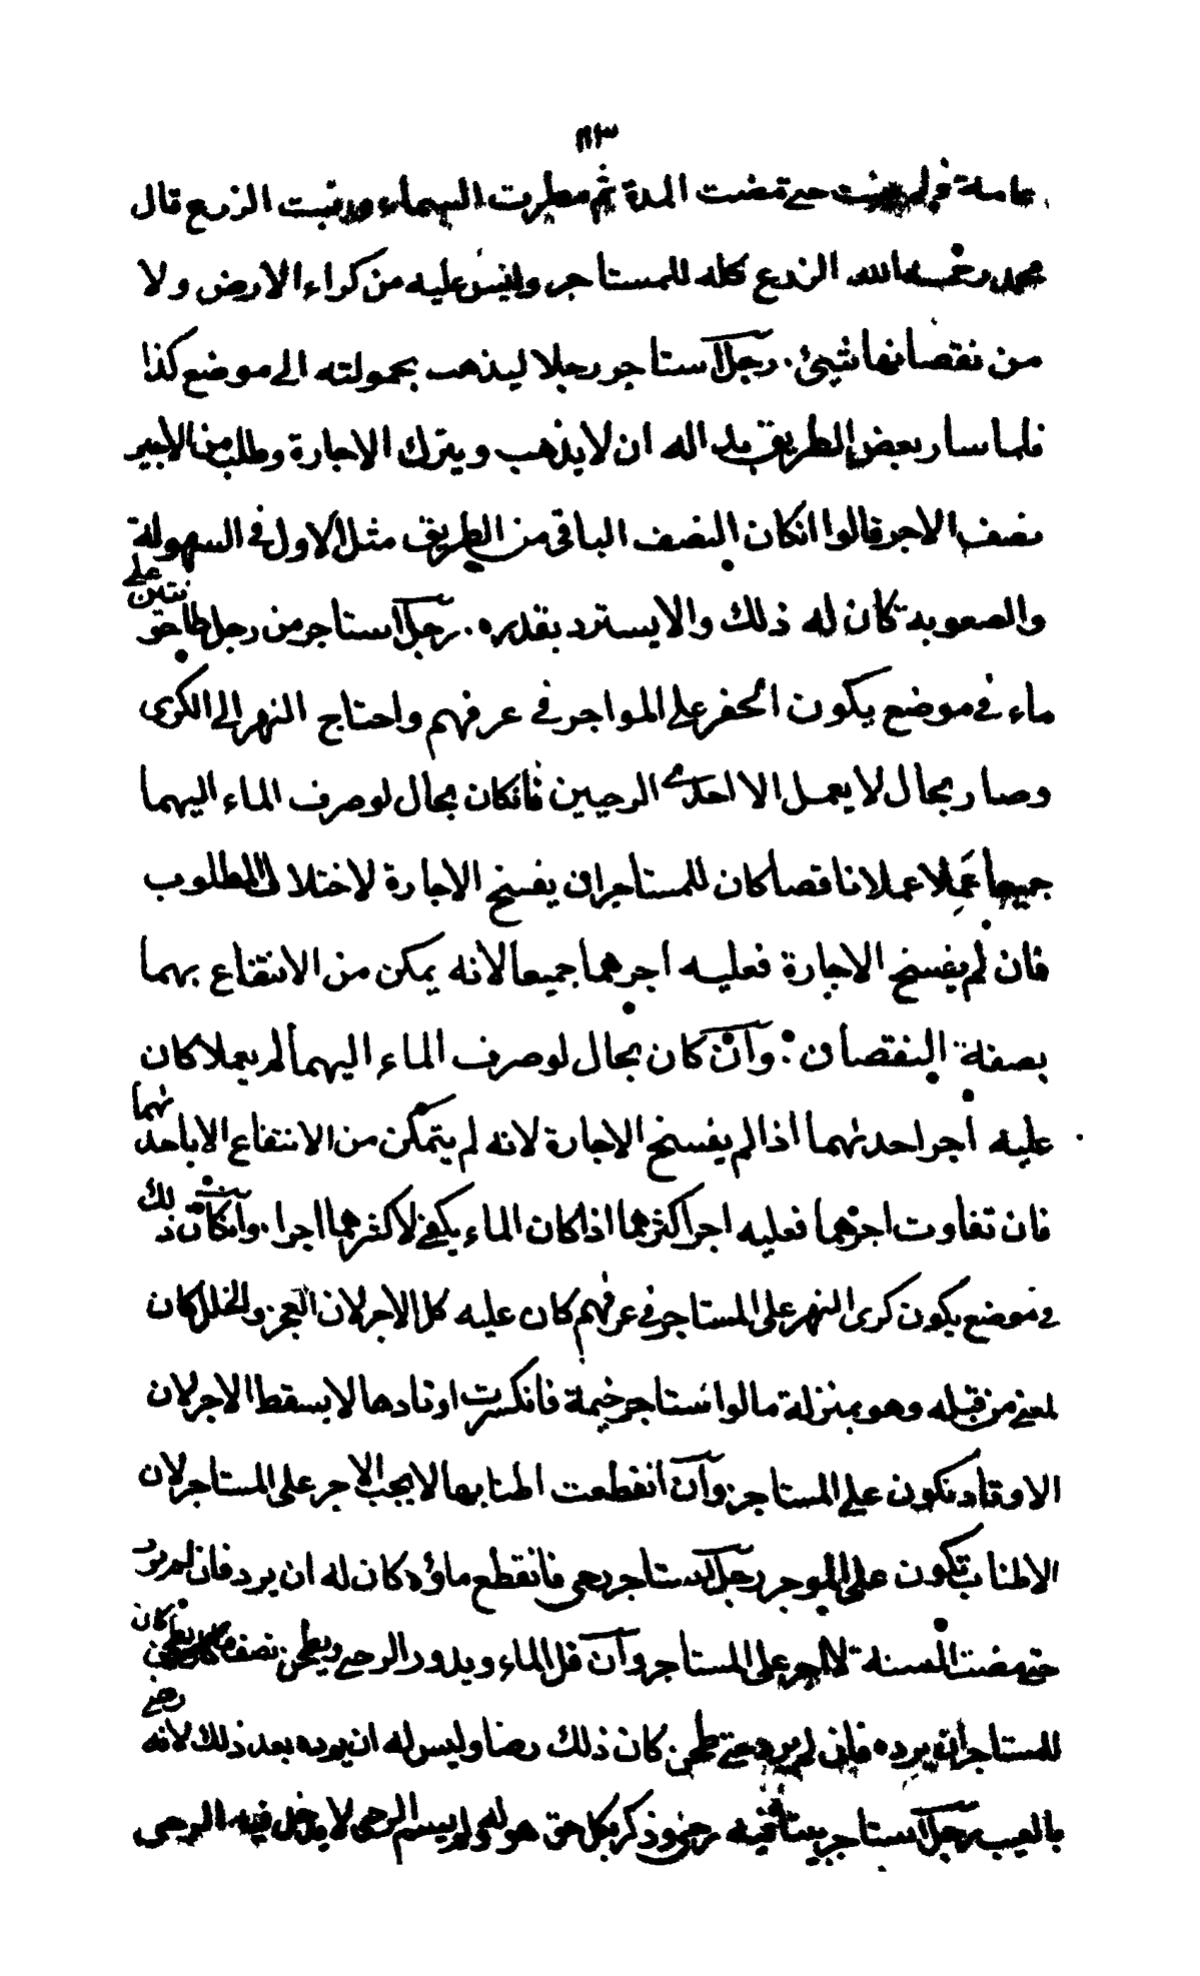 ١١٣
عاملة فلم ينبت حتى مضت المدة ثم مطرت السماء ونبت الزرع قال
محمد رحمه الله الزرع كله للمستاجر وليس عليه من كراء الارض ولا
من نقصانها شيئ. رجل استاجر رجلا ليذهب بحمولته الى موضع كذا
فلما سار بعض الطريق بدا له ان لا يذهب ويترك الاجارة وطلب من الاجير
نصف الاجر قالوا انكان النصف الباقى من الطريق مثل الاول فى السهولة
والصعوبة كان له ذلك والا يسترد بقدره. رجل استاجر من رجل طاحونتين على
ماء فى موضع يكون الحفر على المواجر فى عرفهم واحتاج النهر الى الكرى
وصار بحال لا يعمل الا احدى الرحيين فانكان بحال لو صرف الماء اليهما
جميعا عملا عملا ناقصا كان للمستاجر ان يفسخ الاجارة لاختلال المطلوب
فان لم يفسخ الاجارة فعليه اجرهما جميعا لانه يمكن من الانتفاع بهما
بصفة النقصان : وان كان بحال لو صرف الماء اليهما لم يعملا كان
عليه اجر احدىهما اذا لم يفسخ الاجارة لانه لم يتمكن من الانتفاع الا باحدىهما
فان تفاوت اجرهما فعليه اجر اكثرهما اذا كان الماء يكفى لاكثرهما اجرا. وانكان ذلك
فى موضع يكون كرى النهر على المستاجر فى عرفهم كان عليه كل الاجر لان العجز والخلل كان
لمعنى من قبله وهو بمنزلة ما لو استاجر خيمة فانكسرت اوتادها لا يسقط الاجر لان
الاوتاد تكون على المستاجر وان انقطعت اطنابها لا يجب الاجر على المستاجر لان
الاطناب تكون على الموجر رجل استاجر رحى فانقطع ماؤه كان له ان يرد فان لم يرد
حتى مضت السنة لا اجر على المستاجر وان قل الماء ويدور الرحى ويطحن نصف ما كان يطحن كان
للمستاجر ان يرده فان لم يرد حتى طحن كان ذلك رضا وليس له ان يرده بعد ذلك لانه رضى
بالعيب رجل استاجر بيتا فيه رحى وذكر بكل حق هو له ولم يسم الرحى لا يدخل فيه الرحى